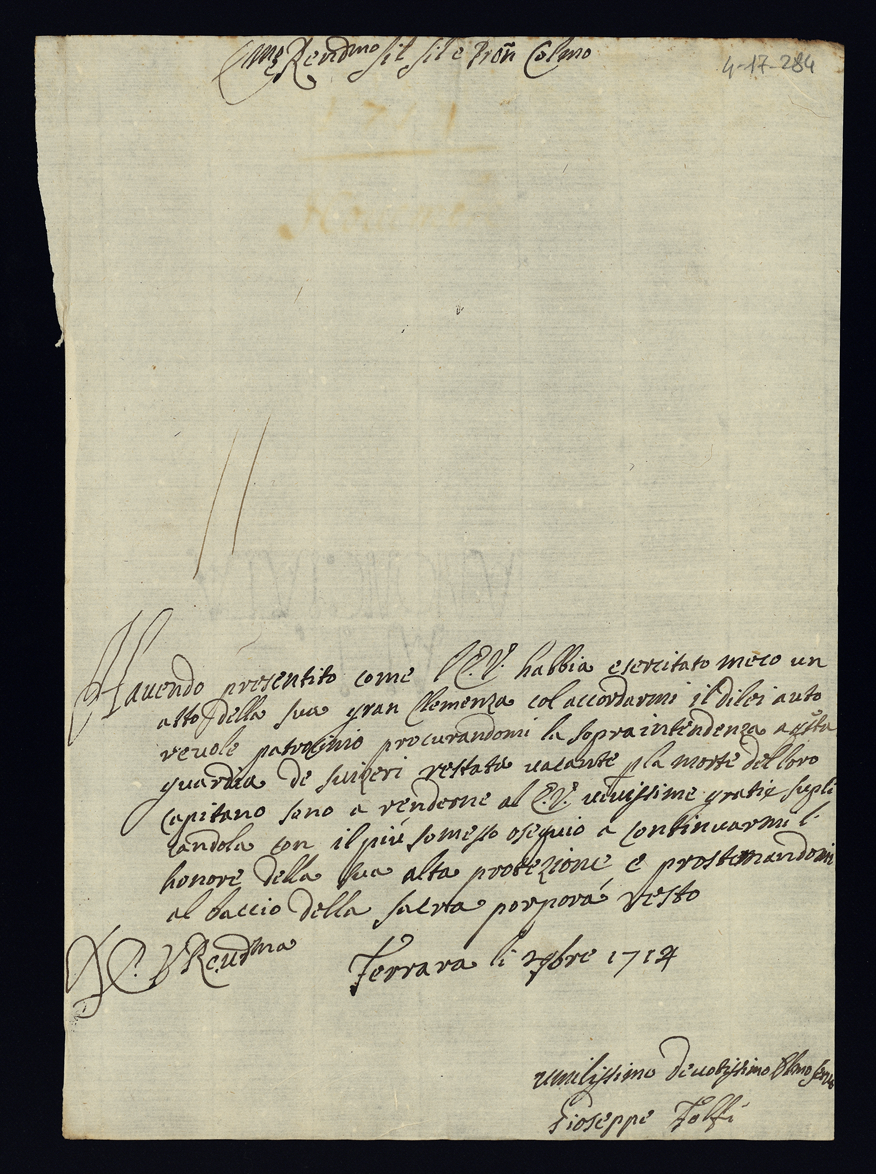 Emo e Rendmo Sil Sil e Pron Colmo
4-17-284
Havendo presentito come l'E.V. habbia esercitato meco un
atto della sua gran Clemenza col accordarmi il di lei auto
revole patrocinio procurandomi la sopraintendenza a qsta
guardia de suizeri restata vacante p la morte del loro
capitano sono a renderne al E.V. vivissime gratie supli
candola con il piú somesso osequio a continuarmi l'
honore della sua alta protezione e prosternandomi
al baccio della sacra porpora resto
D E. V Reudma
Ferrara li 7bre 1714
umilissimo Devotissimo Obmo
Gioseppe